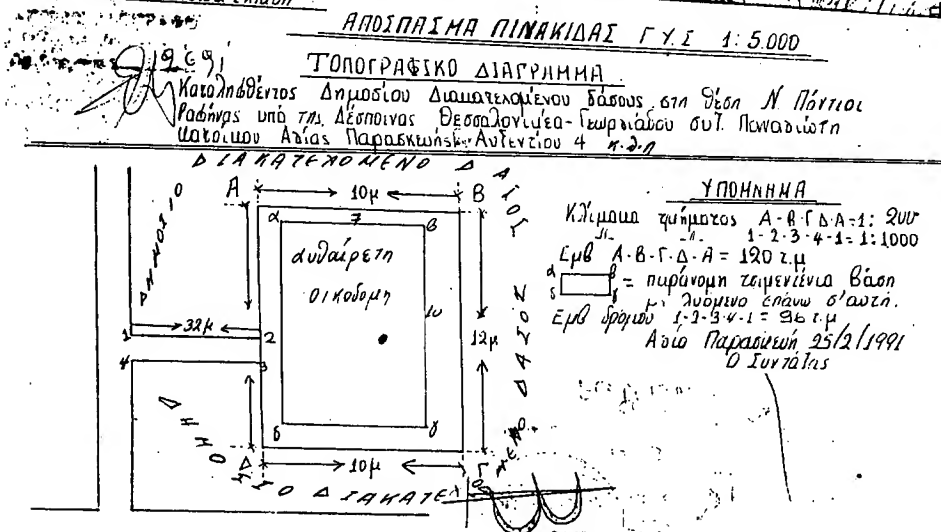 ΑΠΟΣΠΑΣΜΑ ΠΙΝΑΚΙΔΑΣ ΓΥΣ 1:5.000
ΤΟΠΟΓΡΑΦΙΚΟ ΔΙΑΓΡΑΜΜΑ
Καταληφθέντος Δημοσίου Διακατεχομένου δάσους στη θέση Ν. Πόντιοι
Ραφήνας υπό της Δέσποινας Θεσσαλονικέα-Γεωργιάδου συζ. Παναγιώτη
κατοίκου Αγίας Παρασκευής-Αυξεντίου 4
ΔΙΑΚΑΤΕΧΟΜΕΝΟ ΔΑΣΟΣ
ΔΗΜΟΣΙΟ
Α 10μ Β
α 7 β
αυθαίρετη
οικοδομή
10
32μ
1 2
4 3
12μ
δ γ
Δ 10μ Γ
ΔΗΜΟΣΙΟ ΔΙΑΚΑΤΕΧΟΜΕΝΟ ΔΑΣΟΣ
ΥΠΟΜΝΗΜΑ
Κλίμακα τμήματος Α-Β-Γ-Δ-Α=1:200
-"- -"- 1-2-3-4-1=1:1000
Εμβ Α-Β-Γ-Δ-Α = 120 τ.μ
α β
δ γ = παράνομη τσιμεντένια βάση
με λυόμενο επάνω σ'αυτή.
Εμβ δρόμου 1-2-3-4-1 = 96 τ.μ
Αγία Παρασκευή 25/2/1991
Ο Συντάξας